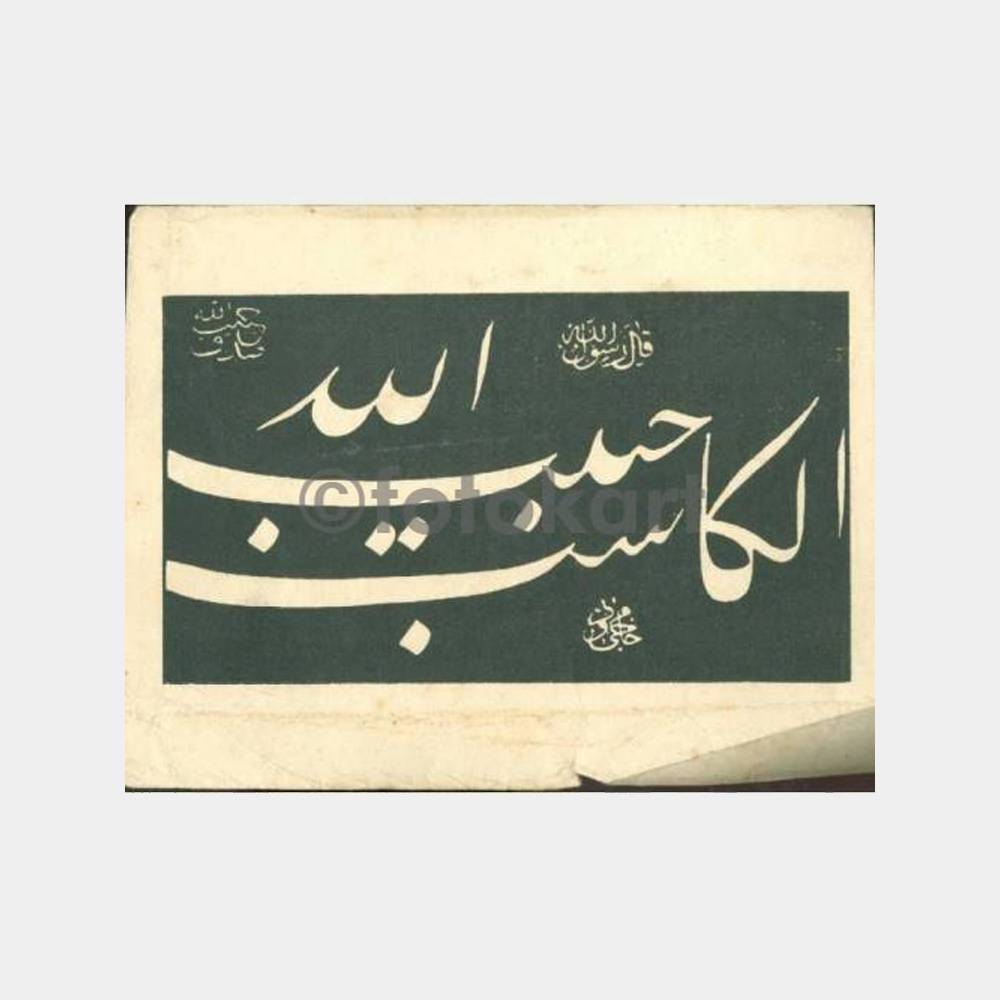 قال رسول الله
الكاسب حبيب الله
©fotokart